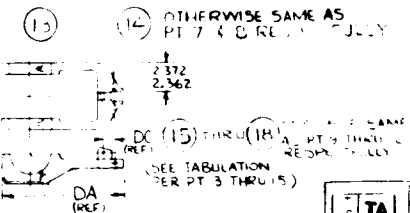 13 14 OTHERWISE SAME AS
PT 7 & 8
2.372
2.362
DC (15) THRU (18) SAME
(REF) AS PT 9 THRU
(SEE TABULATION
PER PT 3 THRU 15)
DA
(REF)
TA